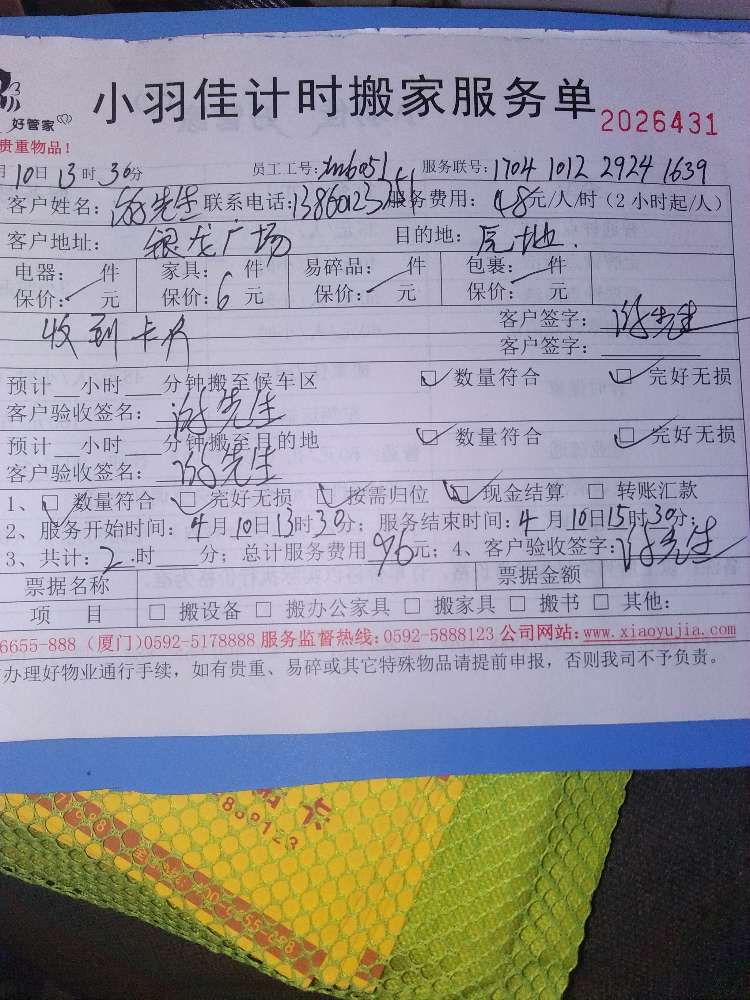 小羽佳计时搬家服务单
2026431
好管家
贵重物品！
月10日13时30分 员工工号: 服务联号:1704 1012 2924 1639
客户姓名:谢先生 联系电话: 服务费用: 48元/人/时（2小时起/人）
客户地址: 银龙广场 目的地:
电器: 件 家具: 件 易碎品: 件 包裹: 件
保价: 元 保价:6元 保价: 元 保价: 元
收到卡片 客户签字: 谢先生
客户签字:
预计__小时___分钟搬至候车区 ☑ 数量符合 ☑ 完好无损
客户验收签名: 谢先生
预计__小时___分钟搬至目的地 ☑ 数量符合 ☑ 完好无损
客户验收签名: 谢先生
1、☑ 数量符合 ☑ 完好无损 ☑ 按需归位 ☑ 现金结算 □ 转账汇款
2、服务开始时间: 4月10日13时30分; 服务结束时间: 4月10日15时30分;
3、共计: 2时___分; 总计服务费用96元; 4、客户验收签字: 谢先生
票据名称 票据金额
项 目 □ 搬设备 □ 搬办公家具 □ 搬家具 □ 搬书 □ 其他:
6655-888 (厦门)0592-5178888 服务监督热线:0592-5888123 公司网站: www.xiaoyujia.com
办理好物业通行手续，如有贵重、易碎或其它特殊物品请提前申报，否则我司不予负责。